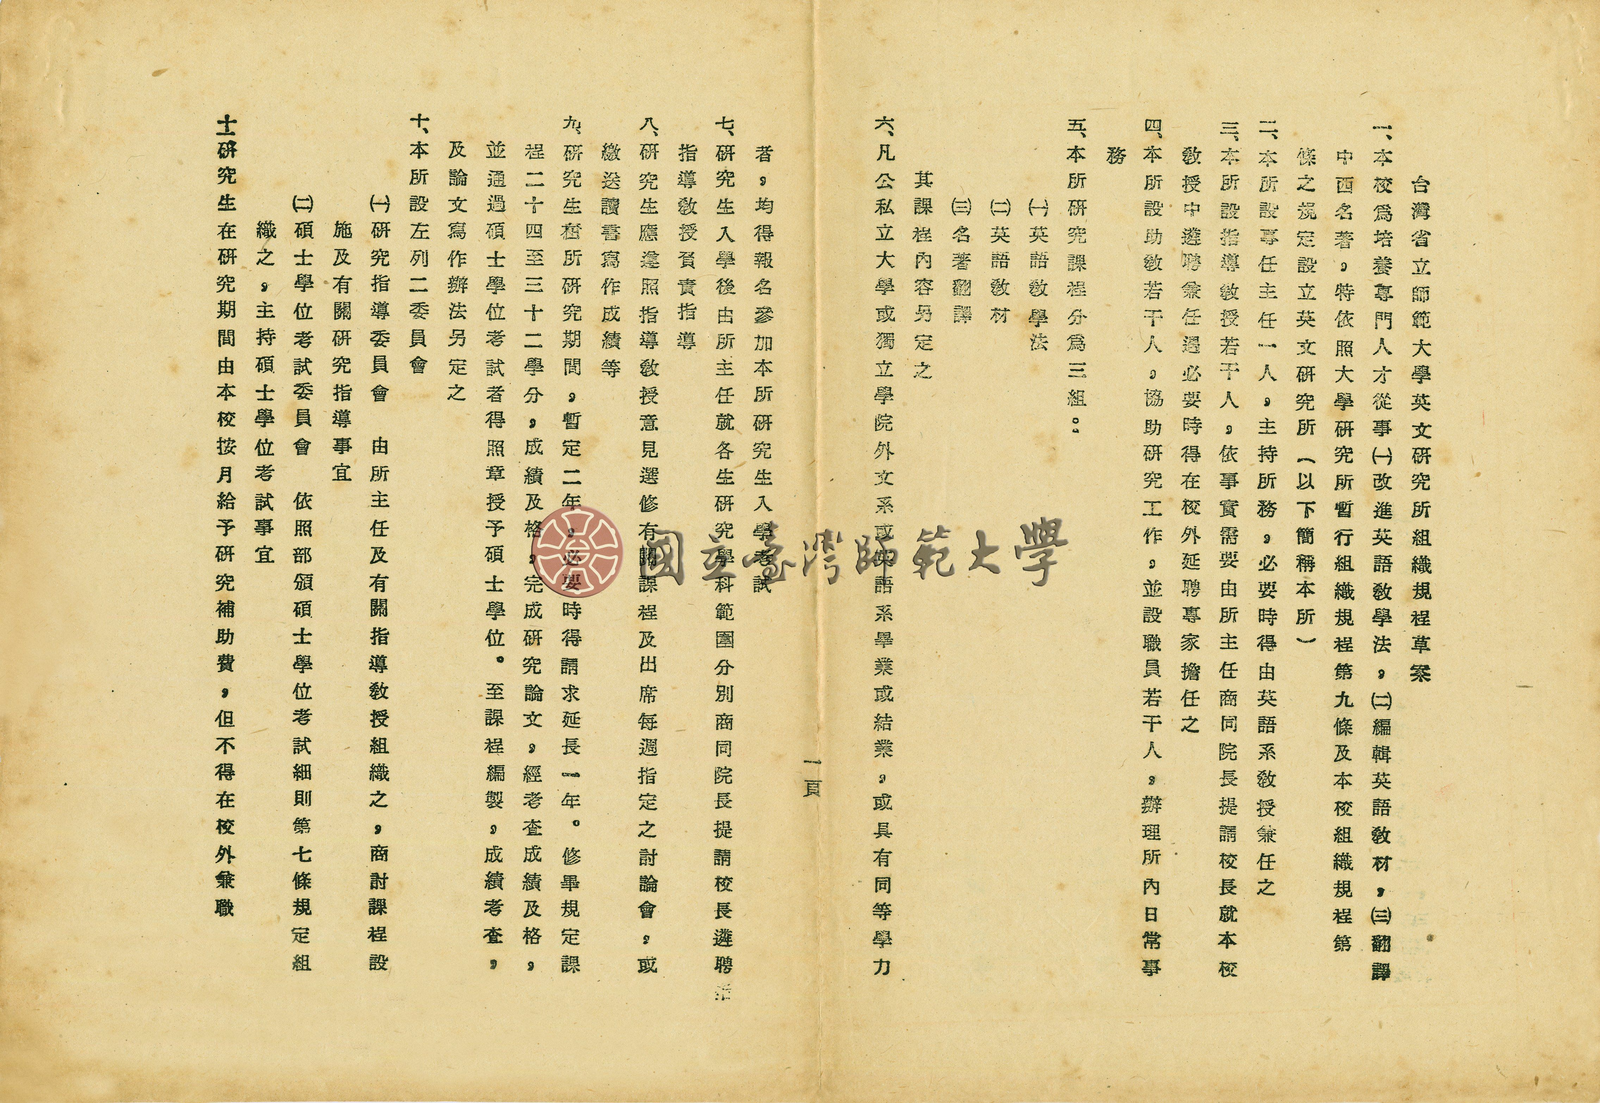 台灣省立師範大學英文研究所組織規程草案
一、本校為培養專門人才從事㈠改進英語教學法，㈡編輯英語教材，㈢翻譯
中西名著，特依照大學研究所暫行組織規程第九條及本校組織規程第
條之規定設立英文研究所（以下簡稱本所）
二、本所設專任主任一人，主持所務，必要時得由英語系教授兼任之
三、本所設指導教授若干人，依事實需要由所主任商同院長提請校長就本校
教授中遴聘兼任遇必要時得在校外延聘專家擔任之
四、本所設助教若干人，協助研究工作，並設職員若干人，辦理所內日常事
務
五、本所研究課程分為三組。
㈠英語教學法
㈡英語教材
㈢名著翻譯
其課程內容另定之
六、凡公私立大學或獨立學院外文系或英語系畢業或結業，或具有同等學力
一頁
者，均得報名參加本所研究生入學考試
七、研究生入學後由所主任就各生研究學科範圍分別商同院長提請校長遴聘
指導教授負責指導
八、研究生應遵照指導教授意見選修有關課程及出席每週指定之討論會，或
繳送讀書寫作成績等
九、研究生在所研究期間，暫定二年，必要時得請求延長一年。修畢規定課
程二十四至三十二學分，成績及格，完成研究論文，經考查成績及格，
並通過碩士學位考試者得照章授予碩士學位。至課程編製，成績考查，
及論文寫作辦法另定之
十、本所設左列二委員會
㈠研究指導委員會　由所主任及有關指導教授組織之，商討課程設
施及有關研究指導事宜
㈡碩士學位考試委員會　依照部頒碩士學位考試細則第七條規定組
織之，主持碩士學位考試事宜
十一、研究生在研究期間由本校按月給予研究補助費，但不得在校外兼職
國立臺灣師範大學